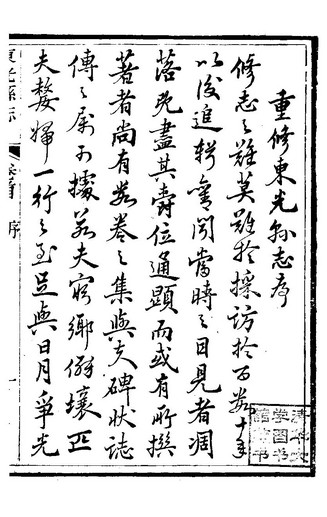 重修東光縣志序
修志之難莫難於採訪於百數十年
以後追輯舊聞當時之目見者凋
落旣盡其壽位通顯而或有所撰
著者尚有數卷之集與夫碑狀誌
傳之屬可據若夫窮鄉僻壤匹
夫嫠婦一行之至足與日月爭光
東光縣志
卷首
序
一